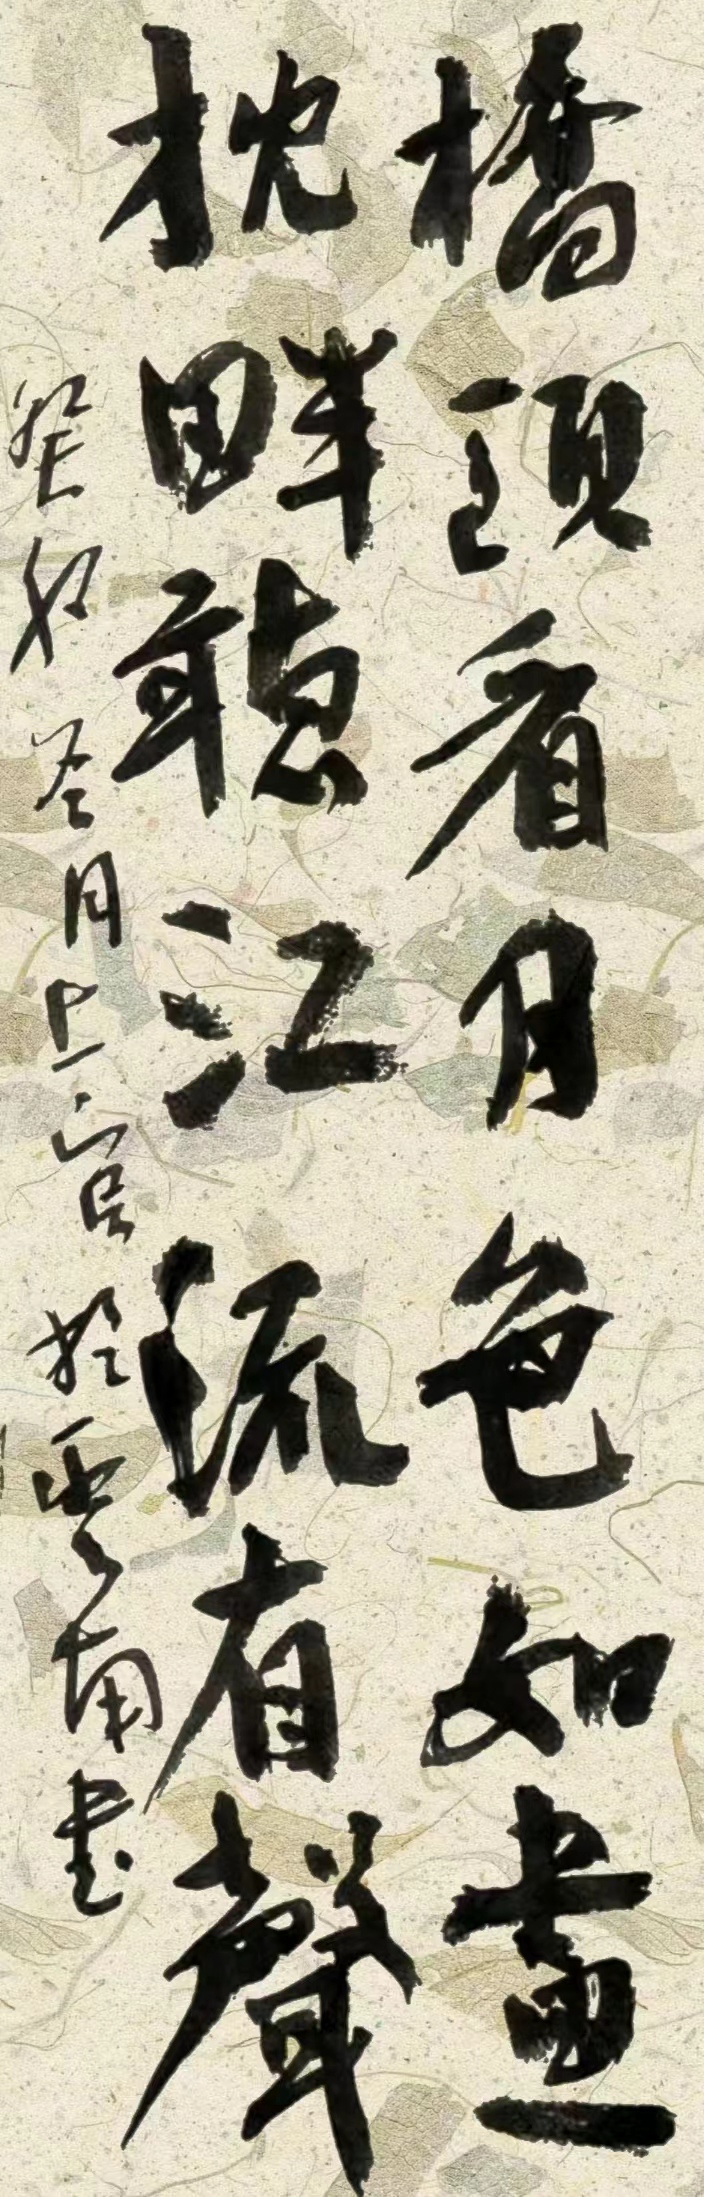 橋頭看月色如畫
枕畔聽江流有聲
癸卯冬月上官於雲南書